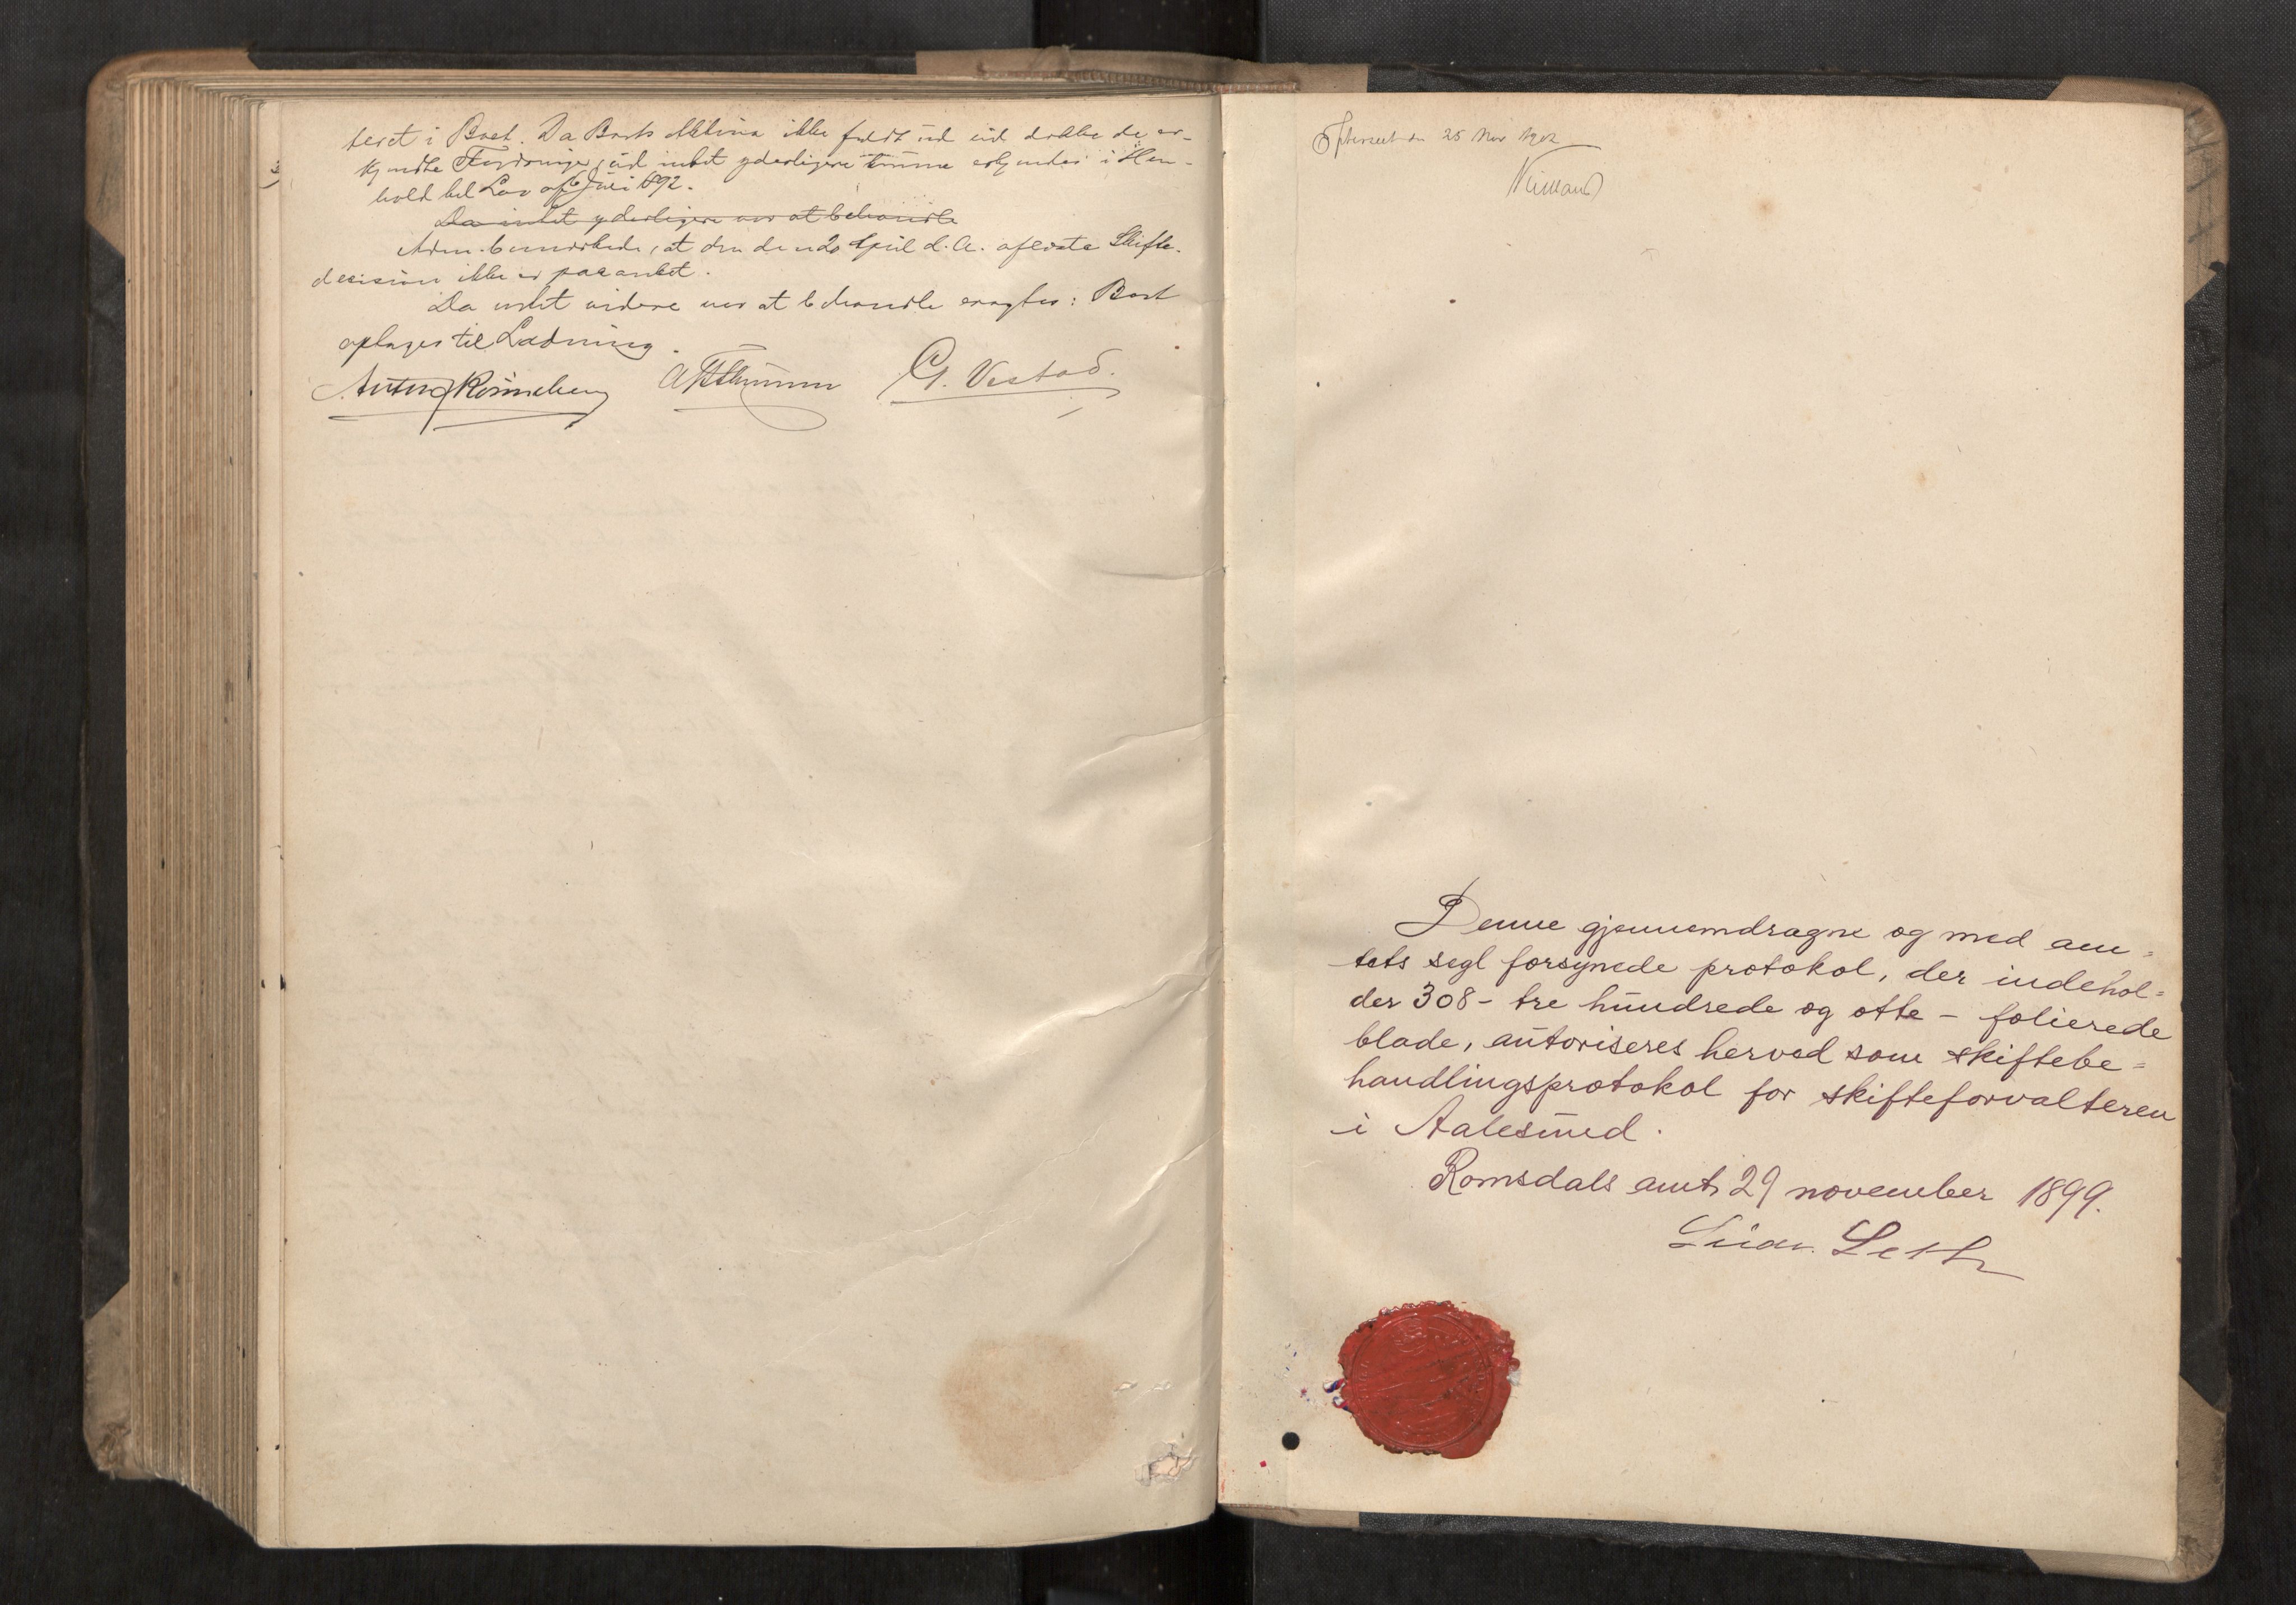 teret i Boet. Da Boets Aktiva ikke fuldt ud vil dække de er-
kjendte Fordringer, vil intet yderligere kunne erkjendes i Hen-
hold til Lov af 6 Juni 1892.
Da intet yderligere var at behandle
Adm. bemærkede, at den den 20 April d. A. afsagte Skifte-
decision ikke er paaanket.
Da intet videre var at behandle eragtes: Boet
optages til Ladning.
Anton Rönneberg G. Vestad.
25 Nov 1902
Denne gjennemdragne og med am-
tets segl forsynede protokol, der indehol-
der 308 - tre hundrede og otte - folierede
blade, autoriseres herved som skiftebe-
handlingsprotokol for skifteforvalteren
i Aalesund.
Romsdals amt 29 november 1899.
Leth